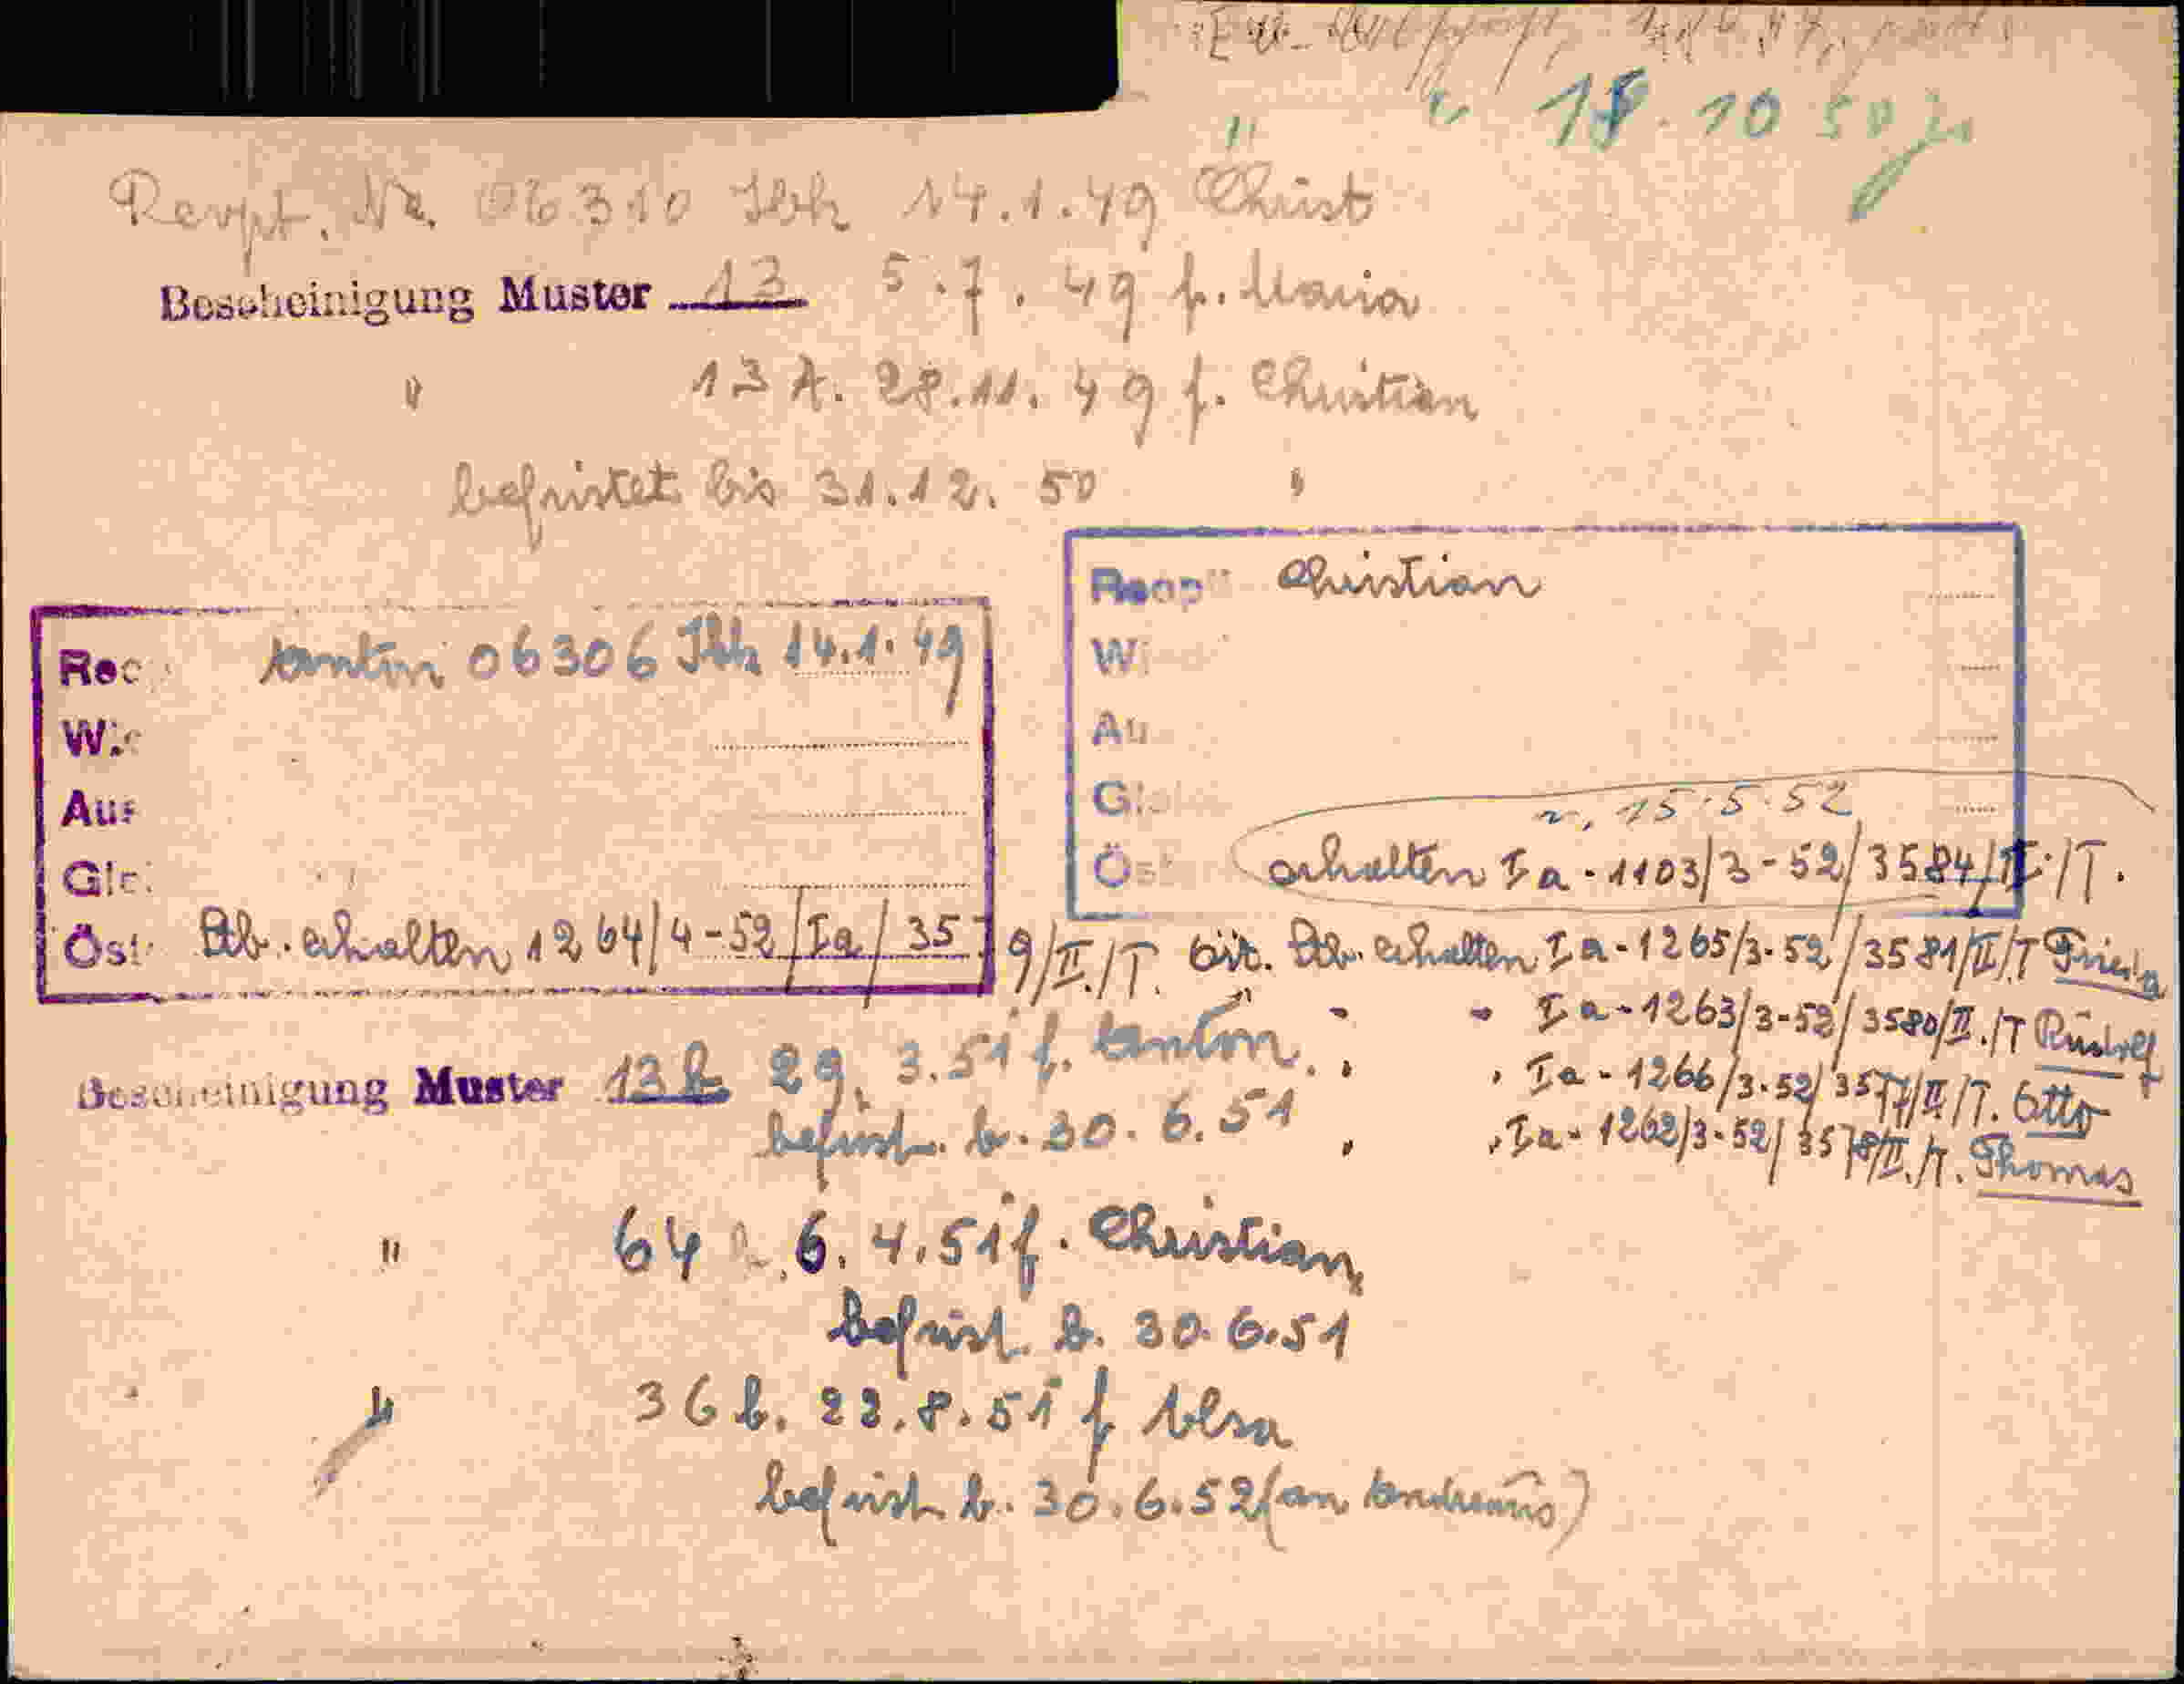 " 18.10 50
Revpt. Nr. 06310 Ibk 14.1.49 Christ
Bescheinigung Muster 13 5.7.49 f. Maria
" 13 A. 28.11.49 f. Christian
befristet bis 31.12.50 "
Christian
W
Au
Rec Anton 06306 Ibk 14.1.49
W
Aus
Gle
n, 15.5.52
Ö erhalten Ia-1103/3-52/3584/II./T.
Öst Stb. erhalten 1264/4-52/Ia/3579/II./T. Öst. Stb. erhalten Ia-1265/3-52/3581/II/T Frieda
" " Ia-1263/3-52/3580/II./T Rudolf
Bescheinigung Muster 13 b 29.3.51 f. Anton
" " Ia-1266/3-52/3577/II/T. Otto
befrist. b. 30.6.51
" " Ia-1262/3-52/3578/II./T. Thomas
" 64 a 6.4.51 f. Christian
befrist. b. 30.6.51
" 36 b. 22.8.51 f Elsa
befrist b. 30.6.52 (an Andreas)